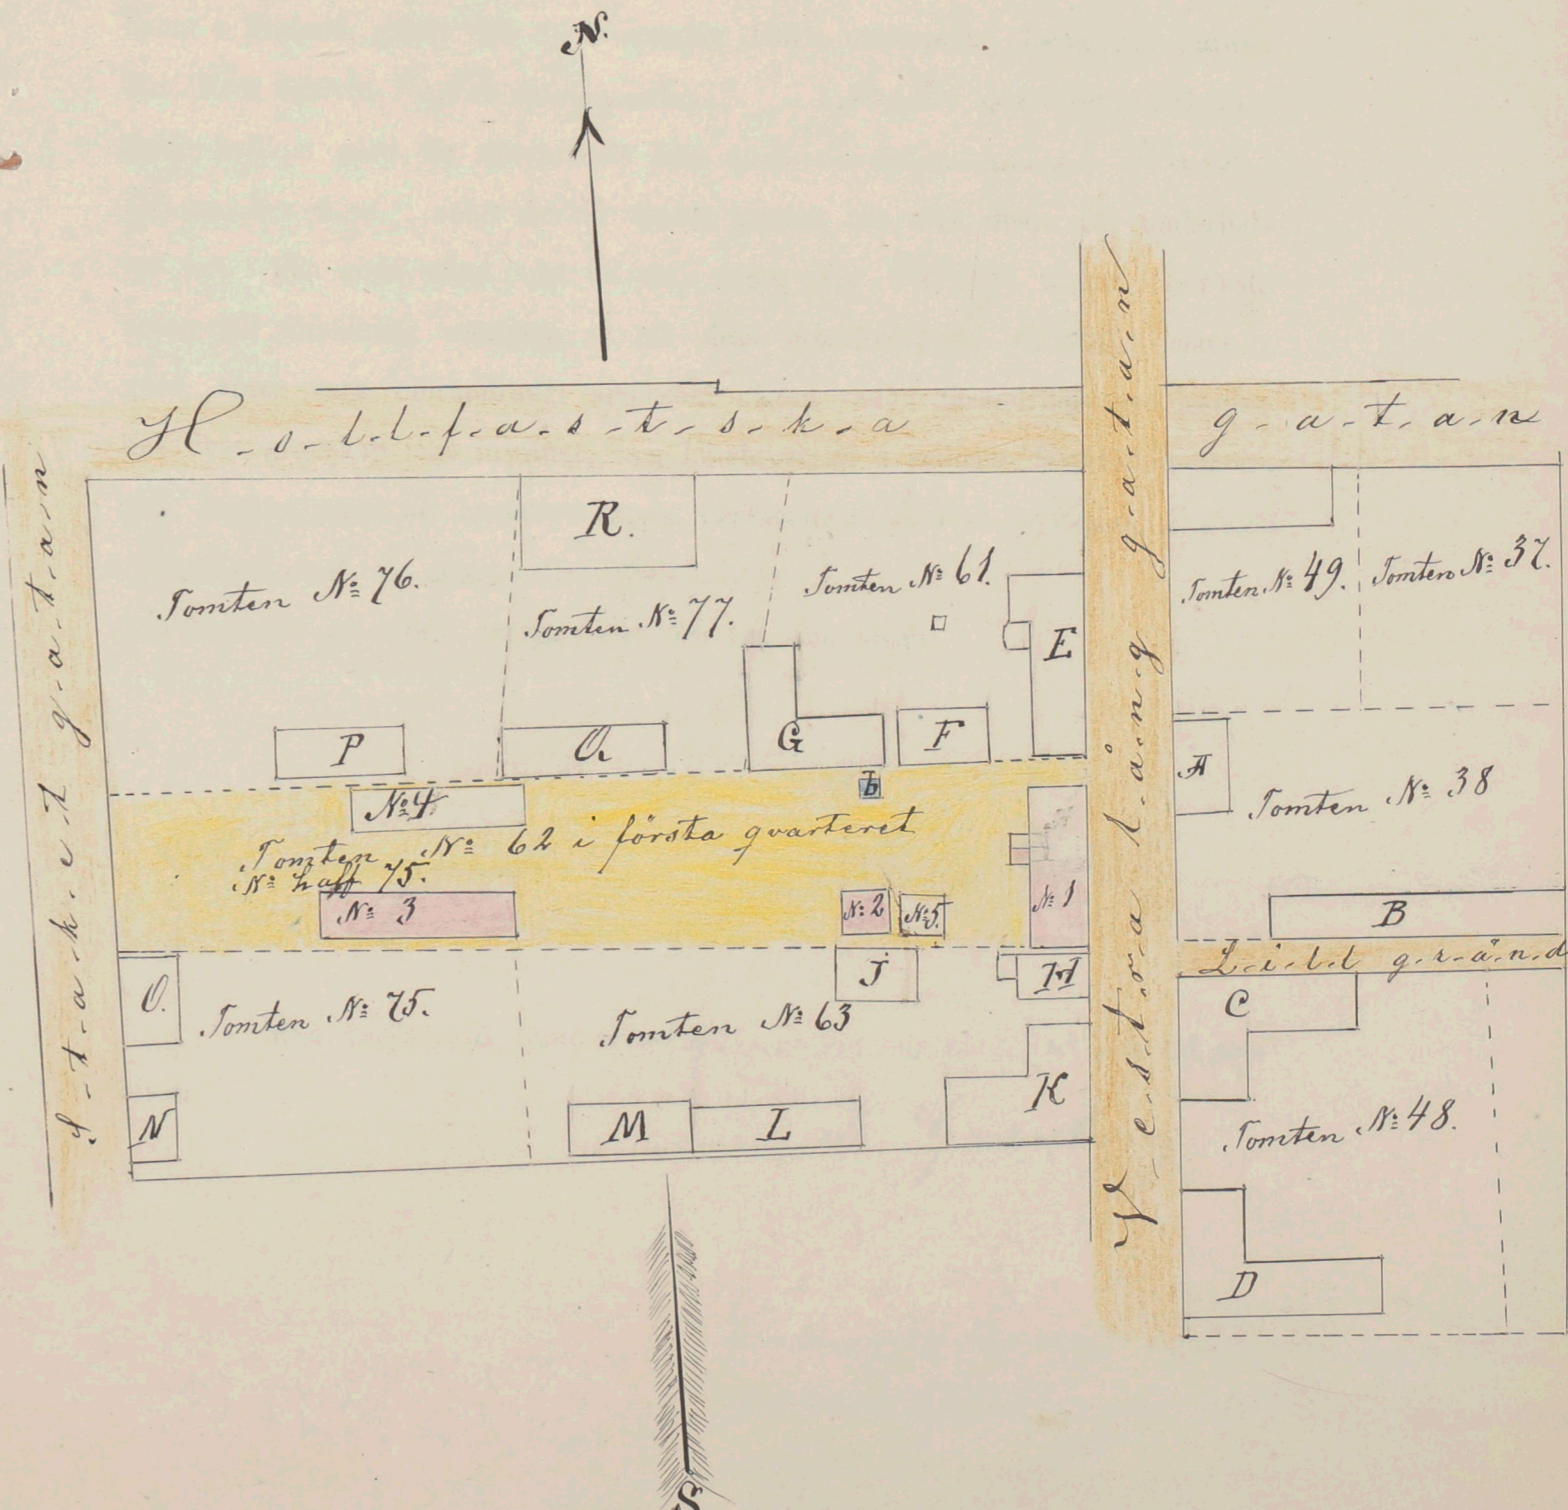 N.
Hollfastska gatan
Staket gatan
Vestra lång gatan
R.
Tomten No 76.
Tomten No 77.
Tomten No 61.
Tomten No 49.
Tomten No 37.
E
P
Q
G
F
A
b
No 4.
Tomten No 62 i första qvarteret
No half 75.
Tomten No 38
No 3
No 2
No 5.
No 1
B
Lill gränd
O.
J
H
C
Tomten No 75.
Tomten No 63
K
N
M
L
Tomten No 48.
D
S